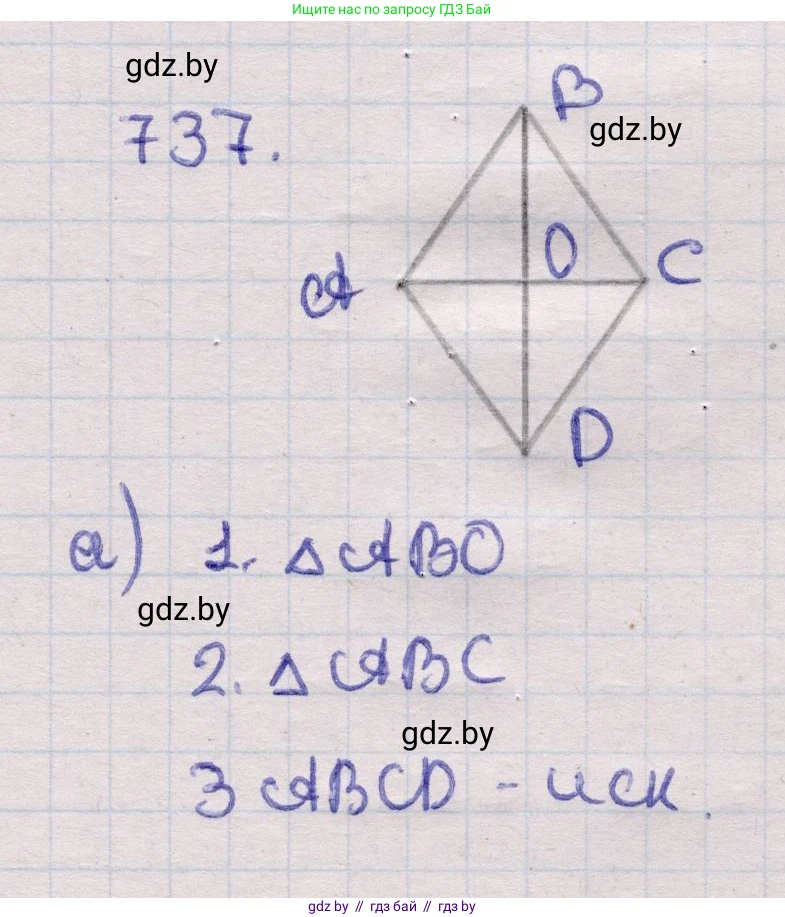 Ищите нас по запросу ГДЗ Бай
gdz.by
737.
B
gdz.by
O
A
C
D
а) 1. Δ ABO
gdz.by
2. Δ ABC
gdz.by
3 ABCD - иск.
gdz.by // гдз бай // гдз by